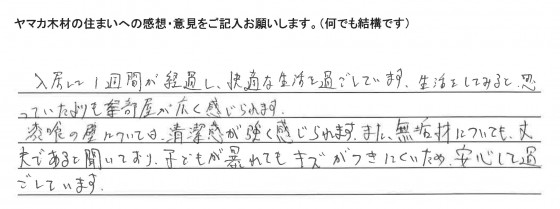 ヤマカ木材の住まいへの感想・意見をご記入お願いします。（何でも結構です）
入居して1週間が経過し、快適な生活を過ごしています。生活をしてみると、思
っていたよりも各部屋が広く感じられます。
漆喰の壁については、清潔感が強く感じられます。また、無垢材についても、丈
夫であると聞いており、子どもが暴れてもキズがつきにくいため、安心して過
ごしています。